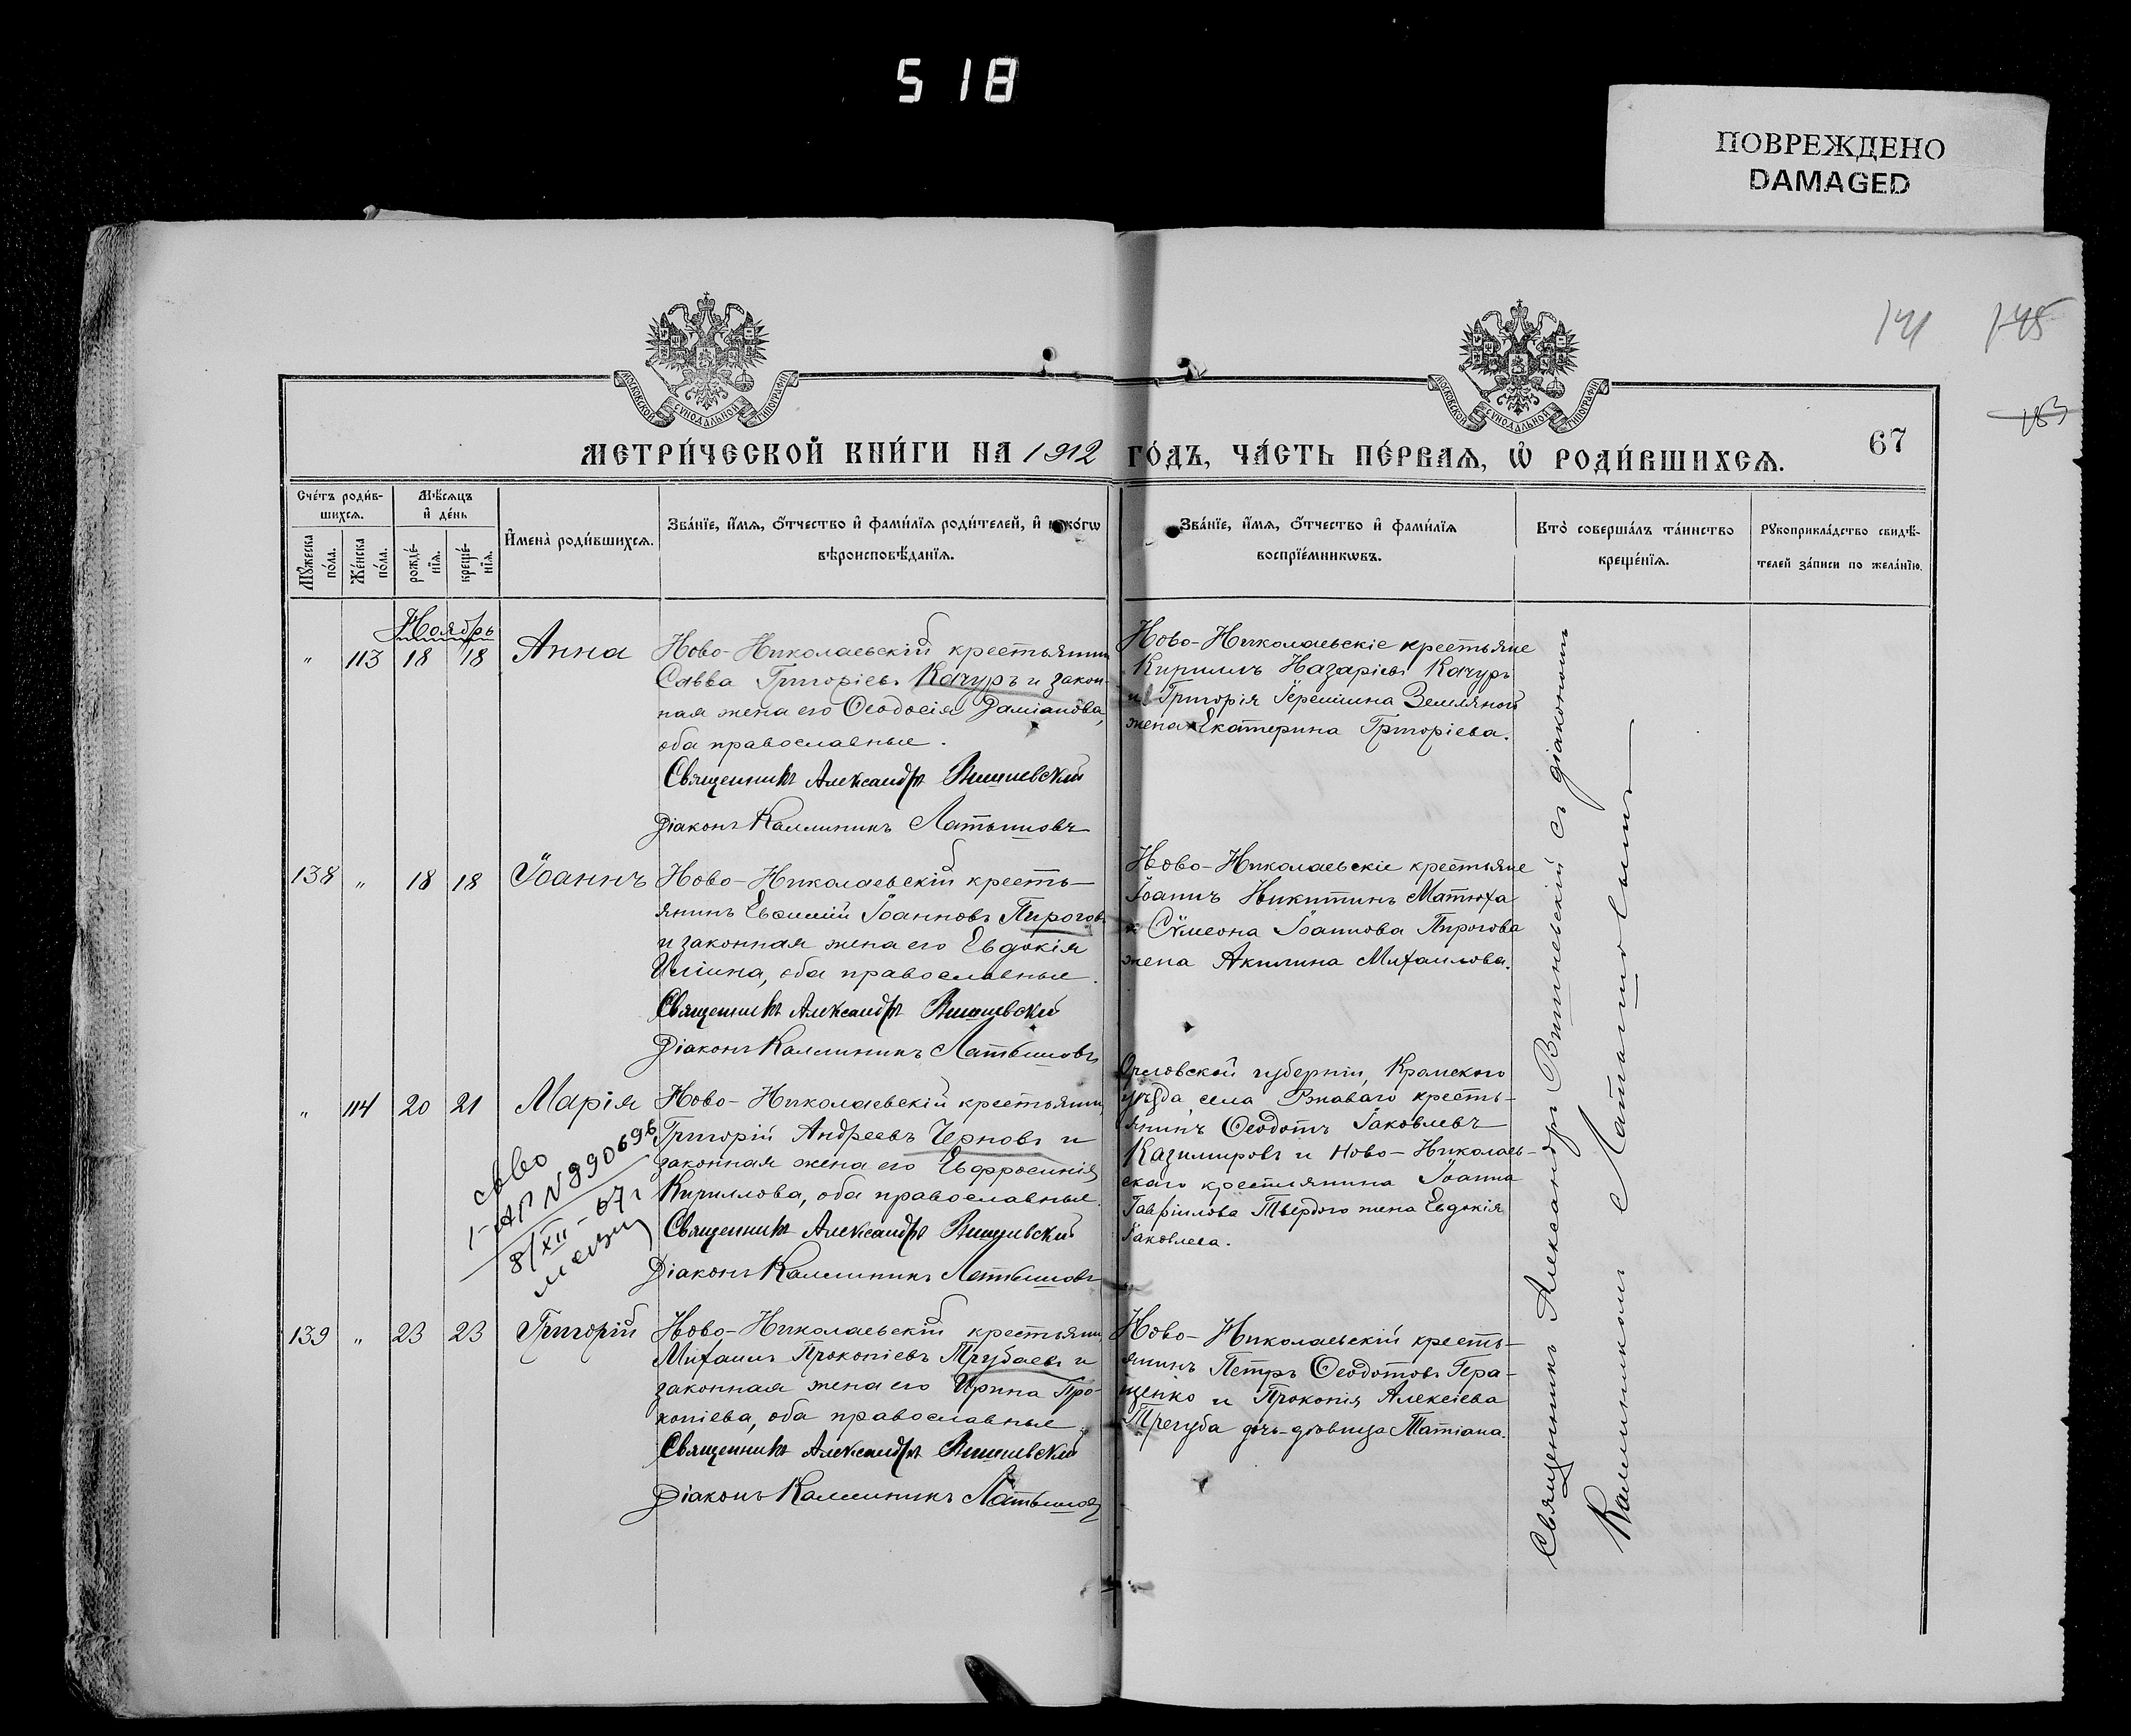 518
ПОВРЕЖДЕНО
DAMAGED
141 145
183
МОСКОВСКОЙ СѴНОДАЛЬНОЙ ТИПОГРАФІИ
МОСКОВСКОЙ СѴНОДАЛЬНОЙ ТИПОГРАФІИ
МЕТРИ́ЧЕСКОЙ КНИ́ГИ НА 1912 ГО́ДЪ, ЧА́СТЬ ПЕ́РВАѦ, Ѡ҆ РОДИ́ВШИХСѦ.
67
Сче́тъ роди́в-
шихсѧ.
Мꙋ́жеска по́ла.
Же́нска по́ла.
Мѣ́сѧцъ
и҆ де́нь
рожде́-
нїѧ.
креще́-
нїѧ.
И҆мена̀ роди́вшихсѧ.
Зва́нїе, и҆́мѧ, ѻ҆́тчество и҆ фами́лїѧ роди́телей, и҆ како́гѡ
вѣроисповѣ́данїѧ.
Зва́нїе, и҆́мѧ, ѻ҆́тчество и҆ фами́лїѧ
воспрїе́мникѡвъ.
Кто̀ соверша́лъ та́инство
креще́нїѧ.
Рꙋкоприкла́дство свидѣ́-
телей за́писи по жела́нїю.
Ноябрь
" 113 18 18 Анна
Ново-Николаевскій крестьянинъ
Савва Григоріевъ Качуръ и закон-
ная жена его Ѳеодосія Даміанова,
оба православные.
Священникъ Александръ Вишневскій
Діаконъ Каллиникъ Латышовъ
Ново-Николаевскіе крестьяне
Кириллъ Назаріевъ Качуръ
и Григорія Іереміина Земляного
жена Екатерина Григоріева.
138 " 18 18 Іоаннъ
Ново-Николаевскій кресть-
янинъ Евѳимій Іоанновъ Пироговъ
и законная жена его Евдокія
Иліина, оба православные.
Священникъ Александръ Вишневскій
Діаконъ Каллиникъ Латышовъ
Ново-Николаевскіе крестьяне
Іоаннъ Никитинъ Матюха
и Сѵмеона Іоаннова Пирогова
жена Акилина Михаилова.
" 114 20 21 Марія
Ново-Николаевскій крестьянинъ
Григорій Андреевъ Черновъ и
законная жена его Евфросинія
Кириллова, оба православные.
Священникъ Александръ Вишневскій
Діаконъ Каллиникъ Латышовъ
Орловской губерніи, Кромского
уѣзда, села кресть-
янинъ Ѳеодотъ Іаковлевъ
Казимировъ и Ново-Николаев-
скаго крестьянина Іоанна
Гавріилова Твердого жена Евдокія
Іаковлева.
I-АП N 890696
8/XII-67г
139 " 23 23 Григорій
Ново-Николаевскій крестьянинъ
Михаилъ Прокопіевъ Трубаевъ и
законная жена его Ирина Про-
копіева, оба православные.
Священникъ Александръ Вишневскій
Діаконъ Каллиникъ Латышовъ
Ново-Николаевскій кресть-
янинъ Петръ Ѳеодотовъ Гра-
щенко и Прокопія Алексіева
Трегуба дочь-дѣвица Татіана.
Священникъ Александръ Вишневскій съ діакономъ
Каллиникомъ Латышовымъ